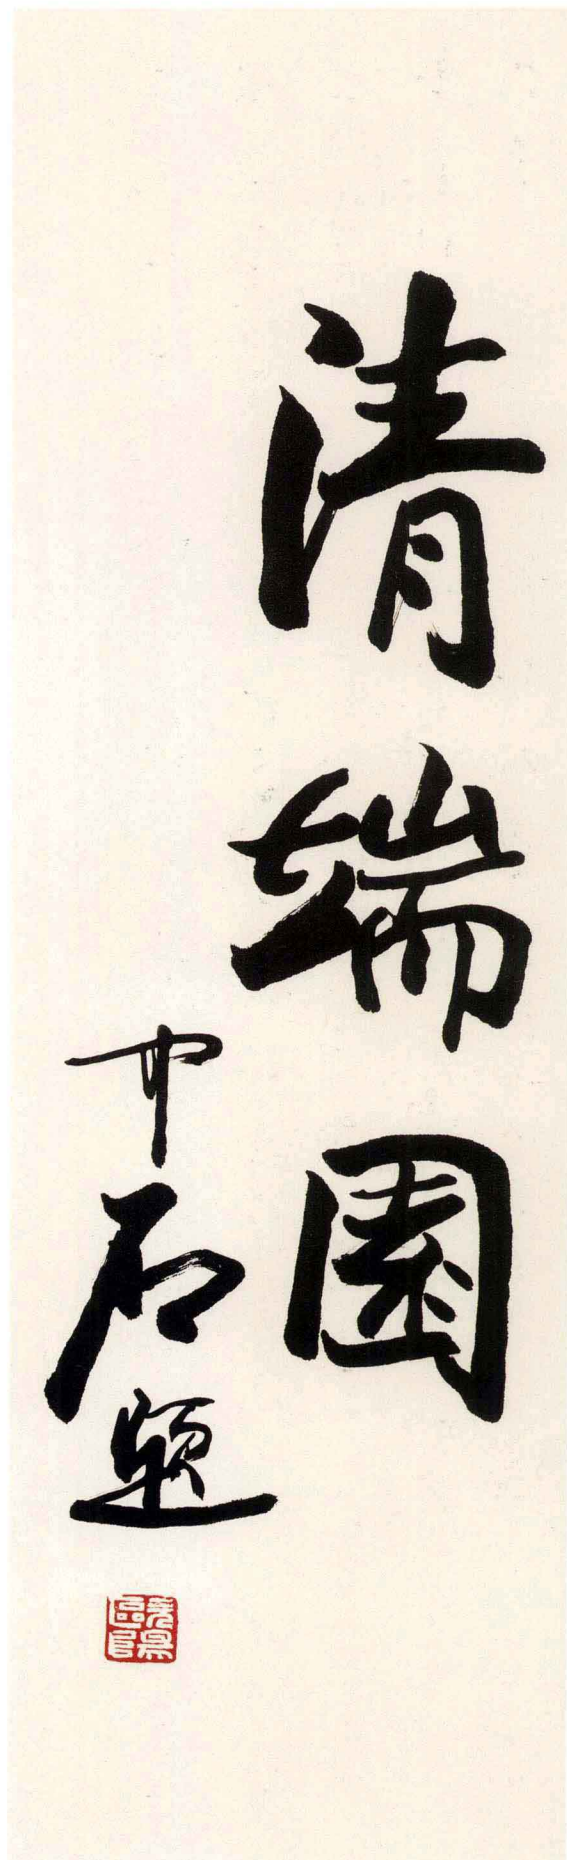 清端園
中石題